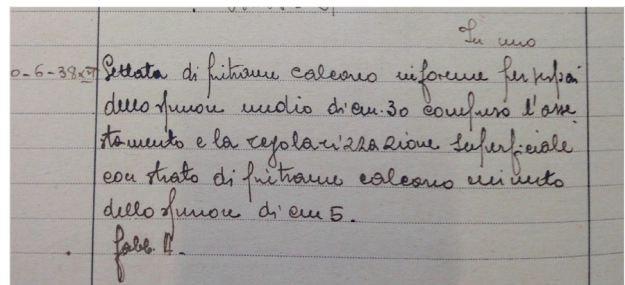 In uno
0-6-38 XVI Gettata di pietrame calcareo informe per vespai
dello spessore medio di cm. 30 compreso l'asse
stamento e la regolarizzazione superficiale
con strato di pietrame calcareo minuto
dello spessore di cm 5.
fabb. A.